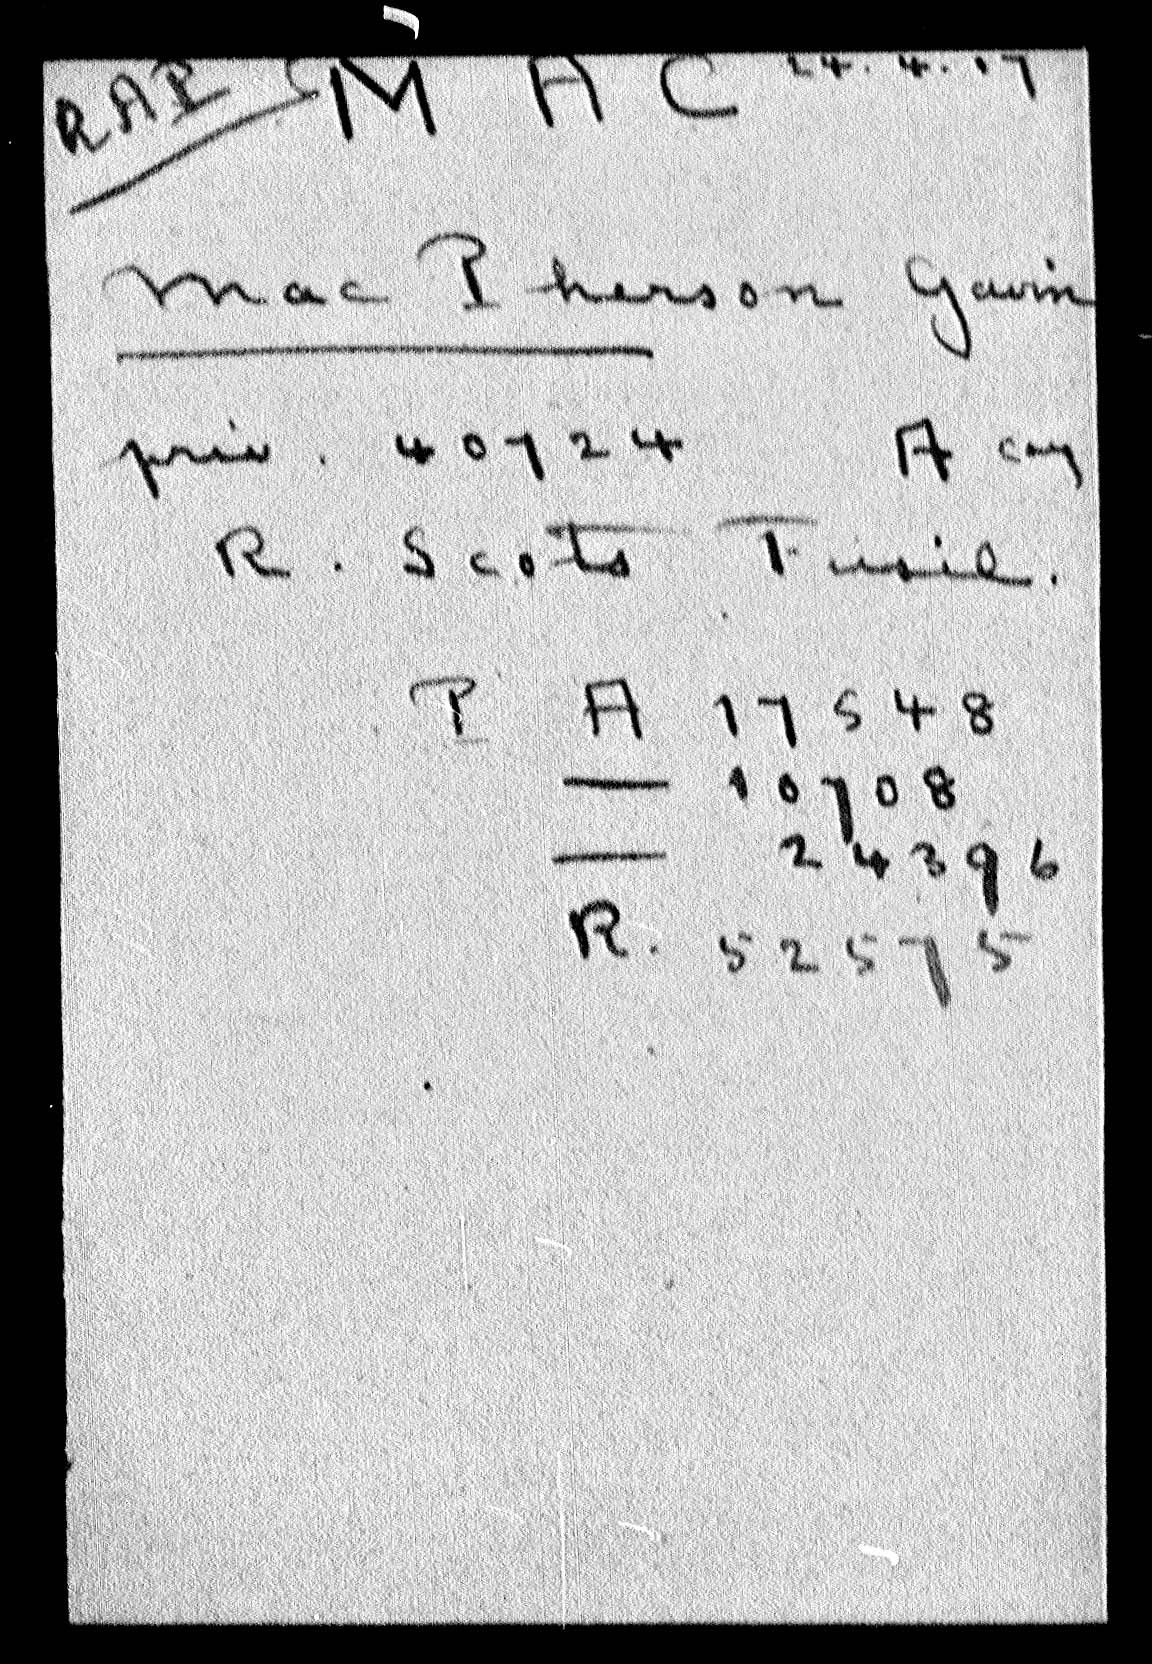 RAP MAC 24.4.17
MacPherson Gavin
priv. 40724 A coy
R. Scots Fusil.
P A 17548
— 10708
— 24396
R. 52575